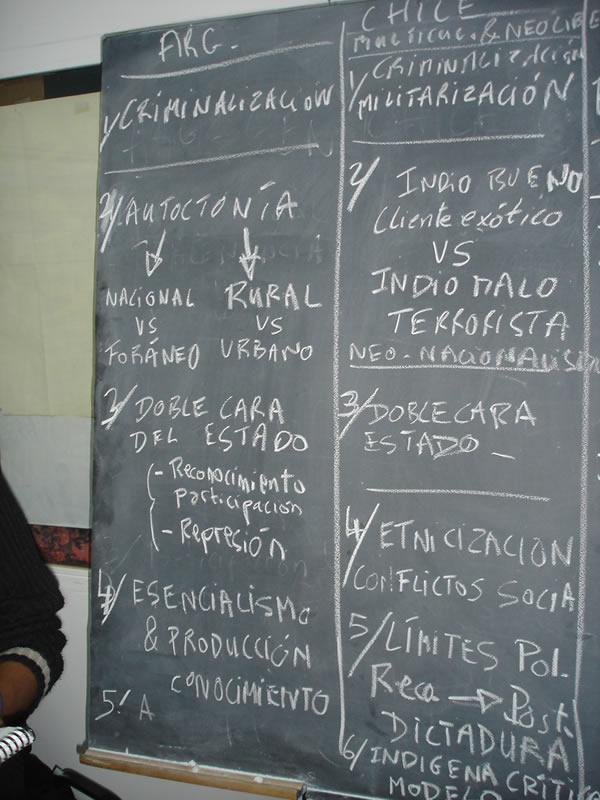 ARG.
1/ CRIMINALIZACIÓN
2/ AUTOCTONÍA
NACIONAL
VS
FORÁNEO
RURAL
VS
URBANO
3/ DOBLE CARA
DEL ESTADO
- Reconocimiento
participación
- Represión
4/ ESENCIALISMO
& PRODUCCIÓN
CONOCIMIENTO
5/ A
CHILE
MULTICUL. & NEOLIBE
1/ CRIMINALIZACIÓN
MILITARIZACIÓN
2/ INDIO BUENO
Cliente exótico
VS
INDIO MALO
TERRORISTA
NEO-NACIONALISM
3/ DOBLE CARA
ESTADO -
4/ ETNICIZACION
CONFLICTOS SOCIA
5/ LÍMITES POL.
Reca → Post.
DICTADURA
6/ INDIGENA CRITIC
MODELO